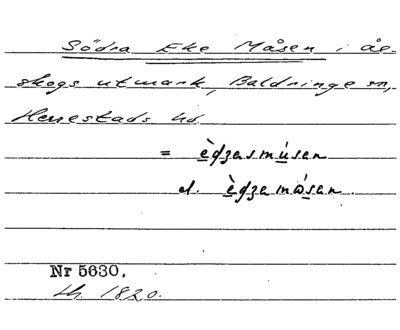 Södra Eke Måsen i åe-
skogs utmark, Baldringe sn,
Herrestads hd.
= èdzasmúsen
el. èdzamósen.
Nr 5630.
1820.